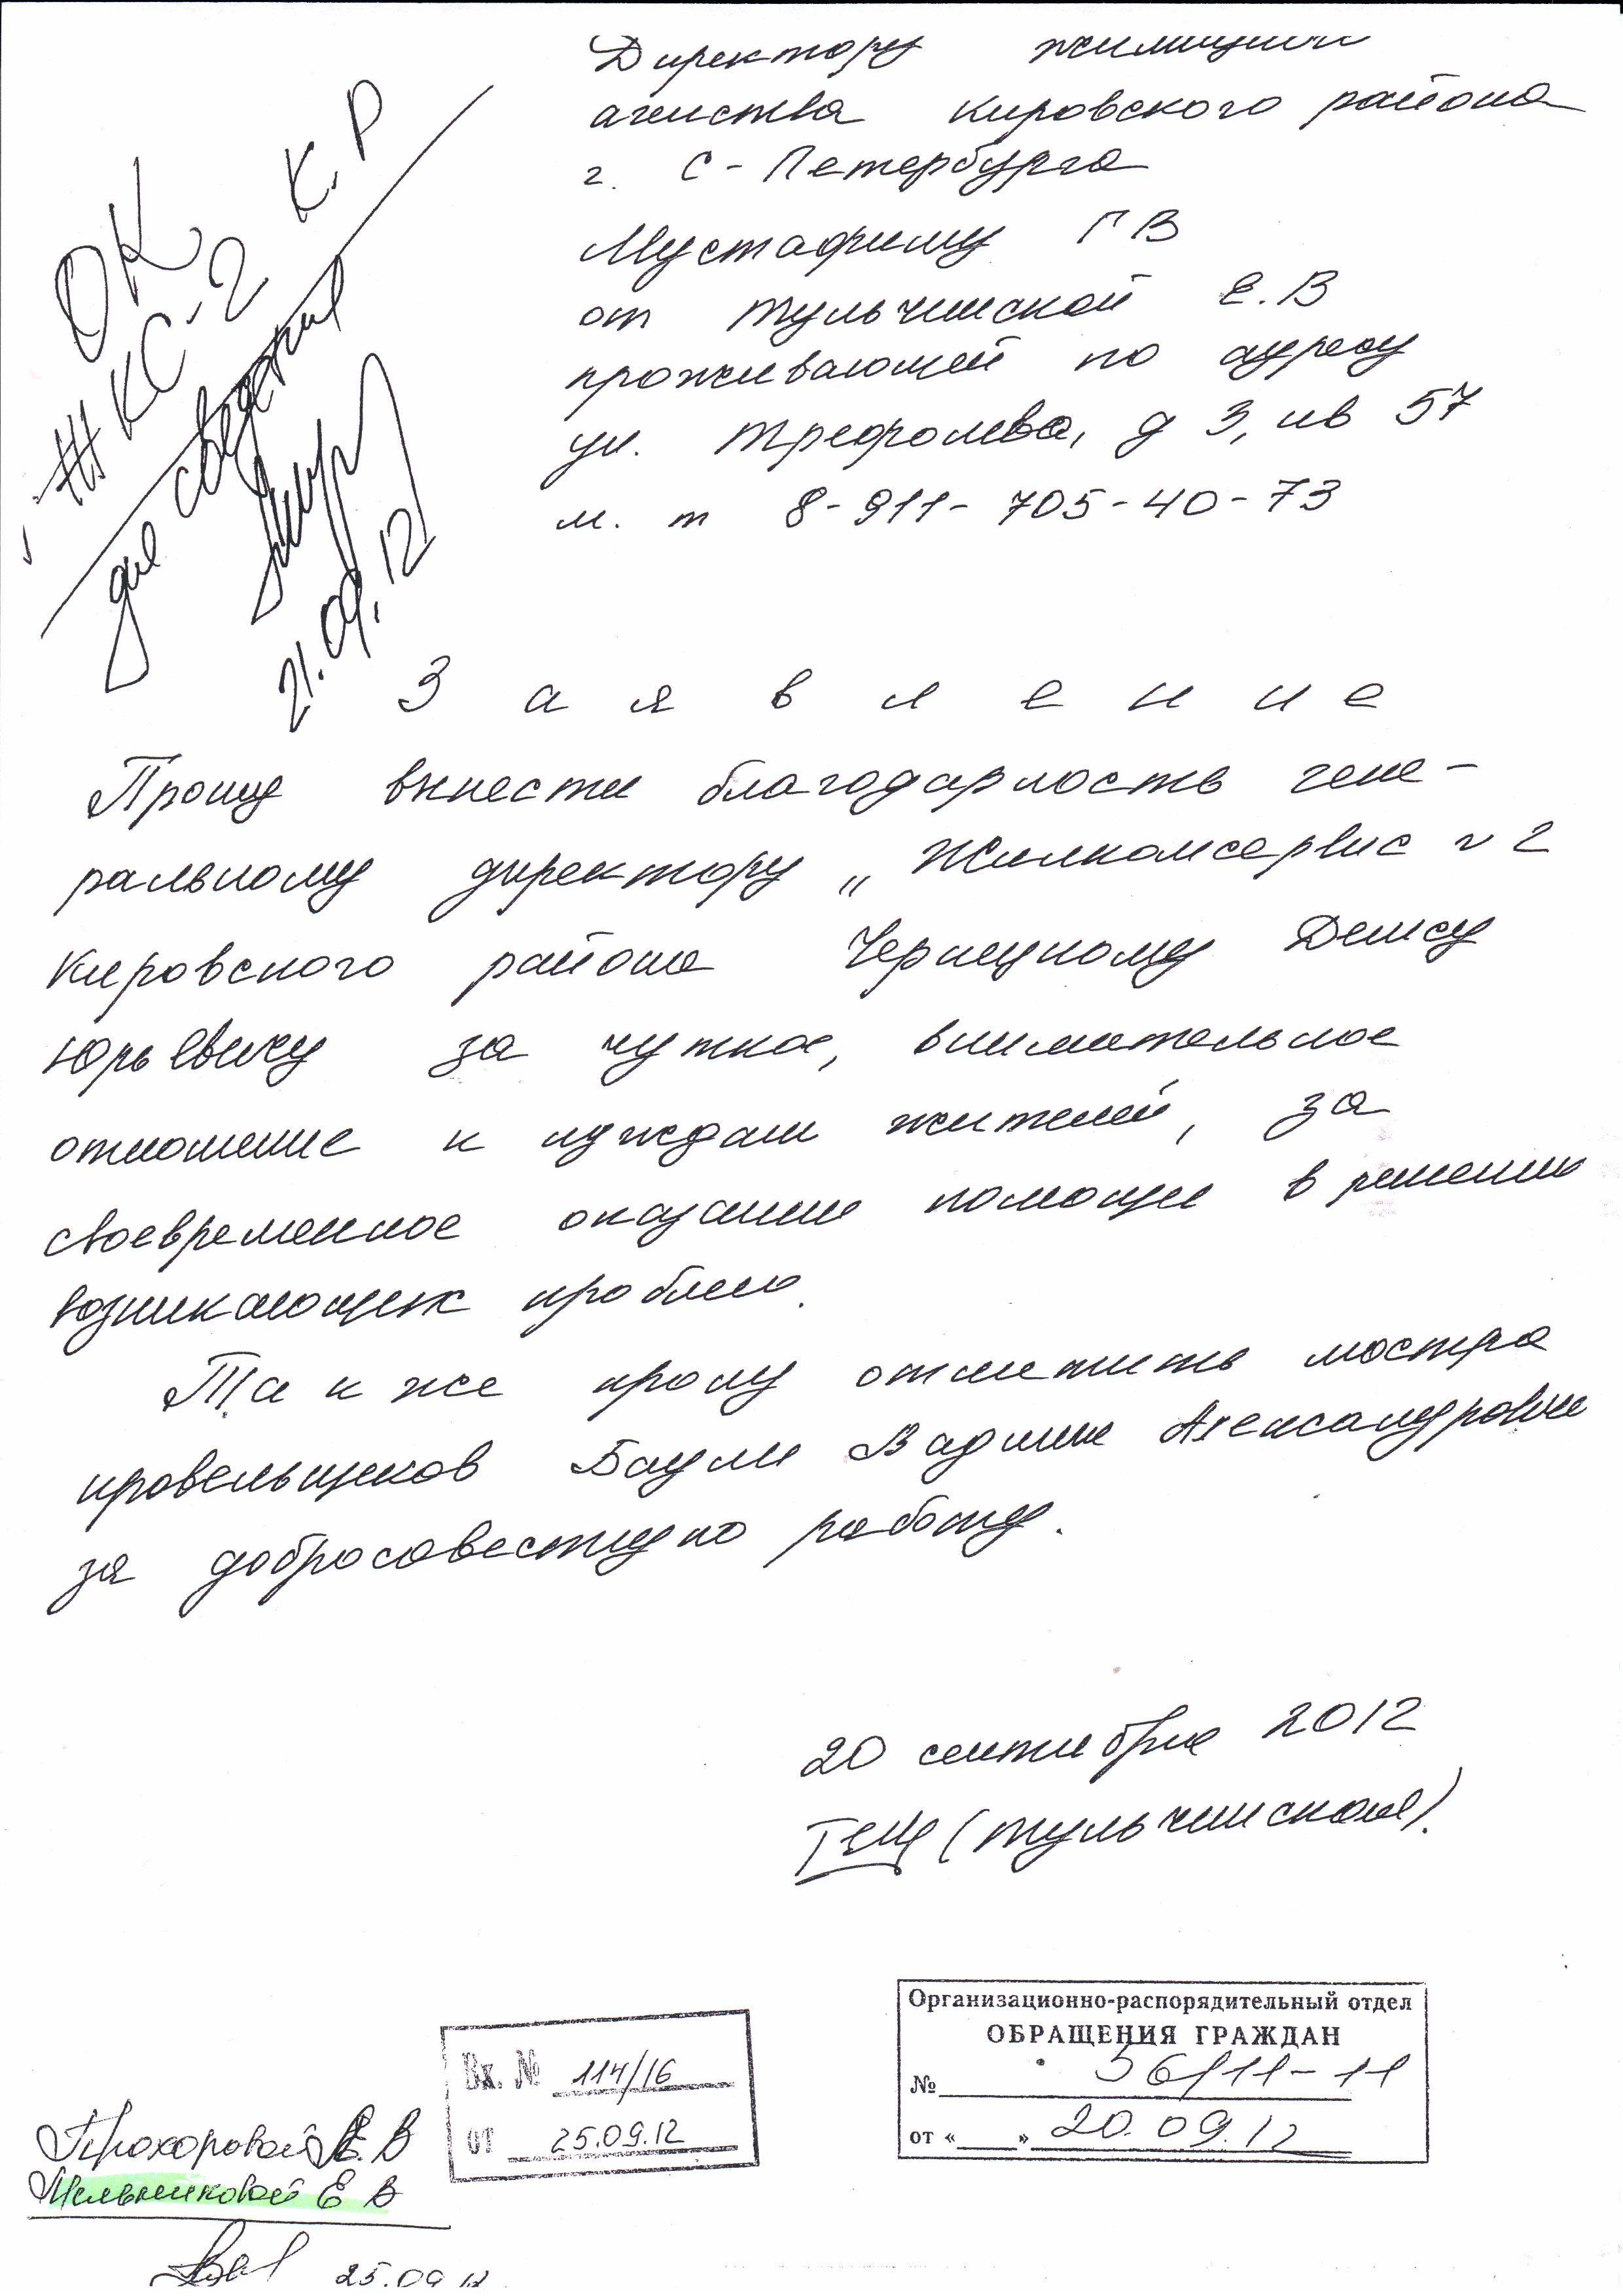 Директору жилищн
агенства Кировского района
г. С-Петербурга
Мустафину ГВ
от Тульчинской Е.В
проживающей по адресу
ул. Трефолева, д 3, кв 57
м. т 8-911-705-40-73
ОК
ЖКС-2 К.Р
для сведения
21.09.12
Заявление
Прошу вынести благодарность гене-
ральному директору „Жилкомсервис N 2
Кировского района Чернецкому Денису
Юрьевичу за чуткое, внимательное
отношение к нуждам жителей, за
своевременное оказание помощи в решении
возникающих проблем.
Также прошу отметить мастра
кровельщиков Вадима Александрович
за добросовестную работу.
20 сентября 2012
(Тульчинская).
Вх. № 114/16
от 25.09.12
Организационно-распорядительный отдел
ОБРАЩЕНИЯ ГРАЖДАН
№ 56/11-11
от « » 20.09.12
Прохоровой Е.В
Мельниковой Е В
25.09 12